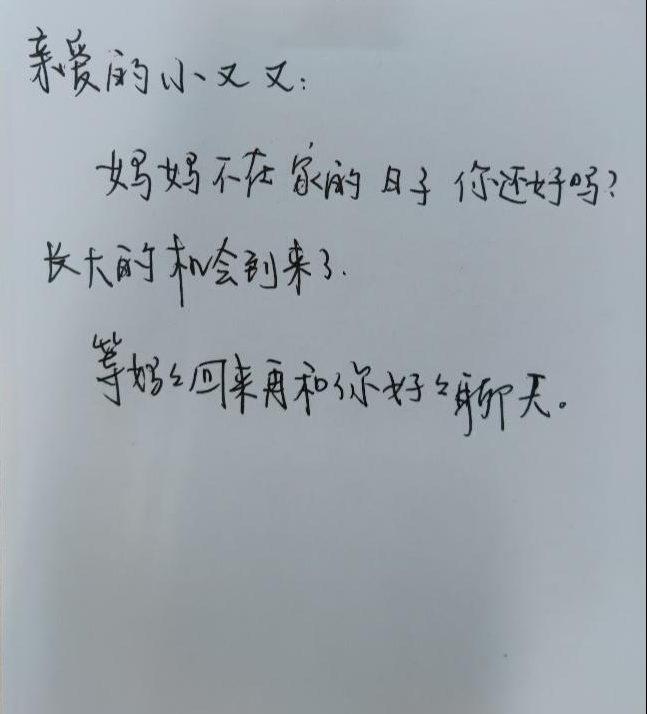 亲爱的小又又:
妈妈不在家的日子你还好吗?
长大的机会到来了.
等妈々回来再和你好々聊天。